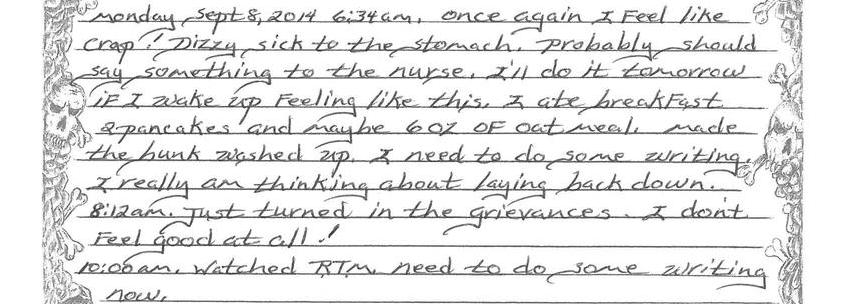 Monday, Sept 8, 2014 6:34am. Once again I Feel like
crap! Dizzy, sick to the stomach. Probably should
say something to the nurse. I'll do it tomorrow
if I wake up Feeling like this. I ate breakfast
2-pancakes and maybe 6oz OF oatmeal. Made
the bunk washed up. I need to do some writing.
I really am thinking about laying back down.
8:12am. Just turned in the grievances. I don't
Feel good at all!
10:00am. Watched RTM. need to do some writing
now.